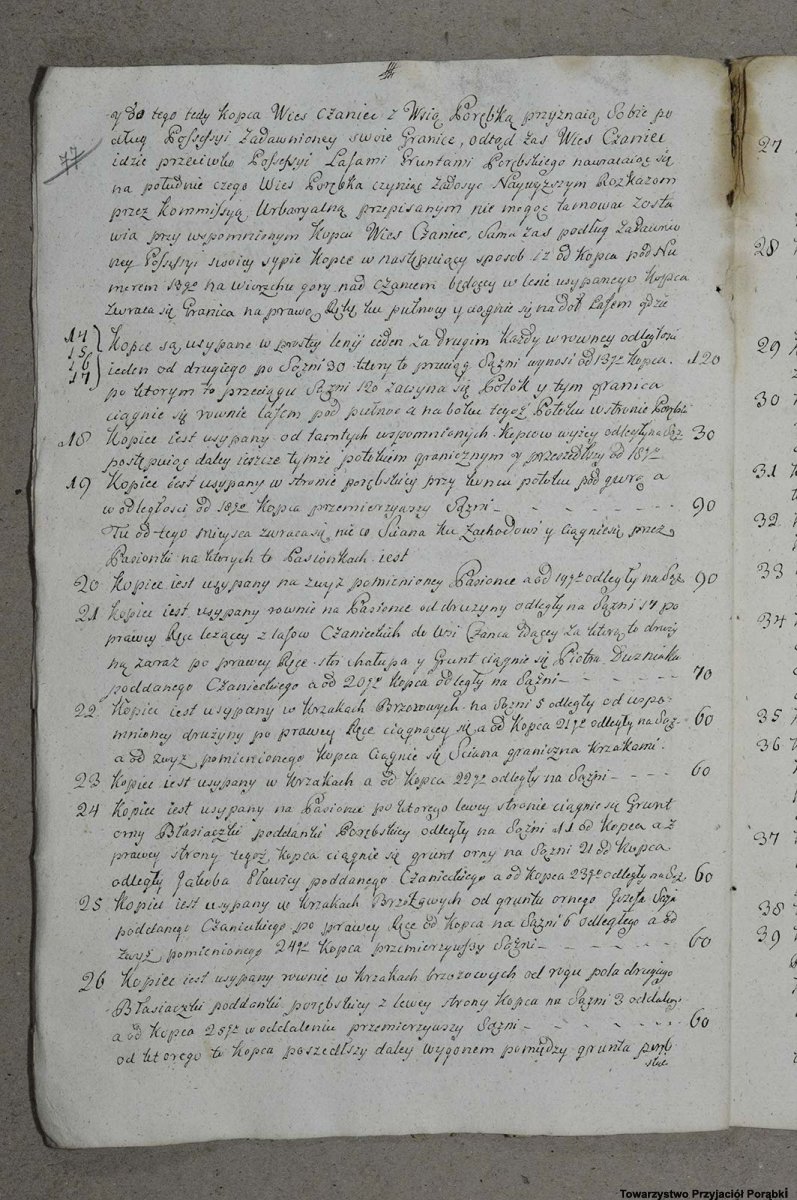 77
y do tego tedy Kopca Wies Czaniec z Wsią Porębką przyznaią Sobie po
dług Possessyi Zadawnioney swoie Granice, odtąd zas Wies Czaniec
idzie przeciwko Possessyi Lasami Gruntami Porębskiego nawracaiąc się
na południe czego Wies Porębka czyniąc zadosyc Naywyższym Rozkazom
przez Kommissyą Urbaryalną przepisanym nie mogąc tamować zosta
wia przy wspomnionym Kopcu Wies Czaniec, Sama zas podług Zadawnio
ney Possessyi swoicy sypie Kopce w następuiący sposob iż od Kopca pod Nu
merem 13go na wierzchu gory nad Czańcem będącey w lesie usypanego Kopca
zwraca się Granica na prawą Rękę ku pułnocy y ciągnie się na doł Lasem gdzie
14 15 16 17 Kopce są usypane w prostey lenii ieden za drugim Każdy w rowney odległości
ieden od drugiego po Sążni 30 ktery to przeciąg Sążni wynosi od 13go Kopca. 120
po ktorym to przeciągu Sążni 120 zaczyna się Potok y tym granica
ciągnie się rownie lasem pod pułnoc a na boku tegoż Potoku w stronie Poręb:
18 Kopiec iest usypany od tamtych wspomnionych Kopcow wyżey odległy na Sąż 30
postępuiąc daley ieszcze tymże potokiem granicznym y przeszedłszy od 18go
19 Kopiec iest usypany w stronie porębskiey przy końcu potoku pod gurą a
w odległości od 18go Kopca przemierzywszy Sążni - - - - 90
Tu od tego mieysca zwraca się nieco Sciana ku Zachodowi y ciągnie się przez
Pasionki na ktorych to Pasionkach iest
20 Kopiec iest usypany na zwyż pomienioney Pasionce a od 19go odległy na Sąż 90
21 Kopiec iest usypany rownie na Pasionce od drużyny odległy na Sążni 14 po
prawey Ręce leżącey z lasow Czanieckich do Wsi Czańca idącey za ktorą to druży
ną zaraz po prawey Ręce stoi chałupa y Grunt ciągnie się Piotra Duźniaka
poddanego Czanieckiego a od 20go Kopca odległy na Sążni - - - 70
22 Kopiec iest usypany w Krzakach Brzozowych na Sążni 5 odległy od wspo-
mnioney drużyny po prawey Ręce ciągnącey się a od Kopca 21go odległy na Sąż- 60
a od zwyż pomienionego Kopca ciągnie się Sciana graniczna Krzakami.
23 Kopiec iest usypany w Krzakach a od Kopca 22go odległy na Sążni - - - - 60
24 Kopiec iest usypany na Pasionce po ktorego lewey stronie ciągnie się Grunt
orny Błasiaczki poddanki Porębskiey odległy na Sążni 11 od Kopca a z
prawey strony tegoż Kopca ciągnie się grunt orny na Sążni 21 od Kopca
odległy Jakoba Sławicy poddanego Czanieckiego a od Kopca 23go odległy na Sąż 60
25 Kopiec iest usypany w Krzakach Brzozowych od gruntu ornego Jozefa
poddanego Czanieckiego po prawey Ręce od Kopca na Sążni 6 odległego a od
zwyż pomienionego 24go Kopca przemierzywszy Sążni - - - - - 60
26 Kopiec iest usypany rownie w Krzakach brzozowych od rogu pola drugiego
Błasiaczki poddanki porębskiey z lewey strony Kopca na Sążni 3 oddalony
a od Kopca 25go w oddaleniu przemierzywszy Sążni - - - - - 60
od ktorego to Kopca poszedłszy daley wygonem pomiędzy grunta poręb
skie
27
28
29
30
31
32
33
34
35
36
37
38
39
Towarzystwo Przyjaciół Porąbki